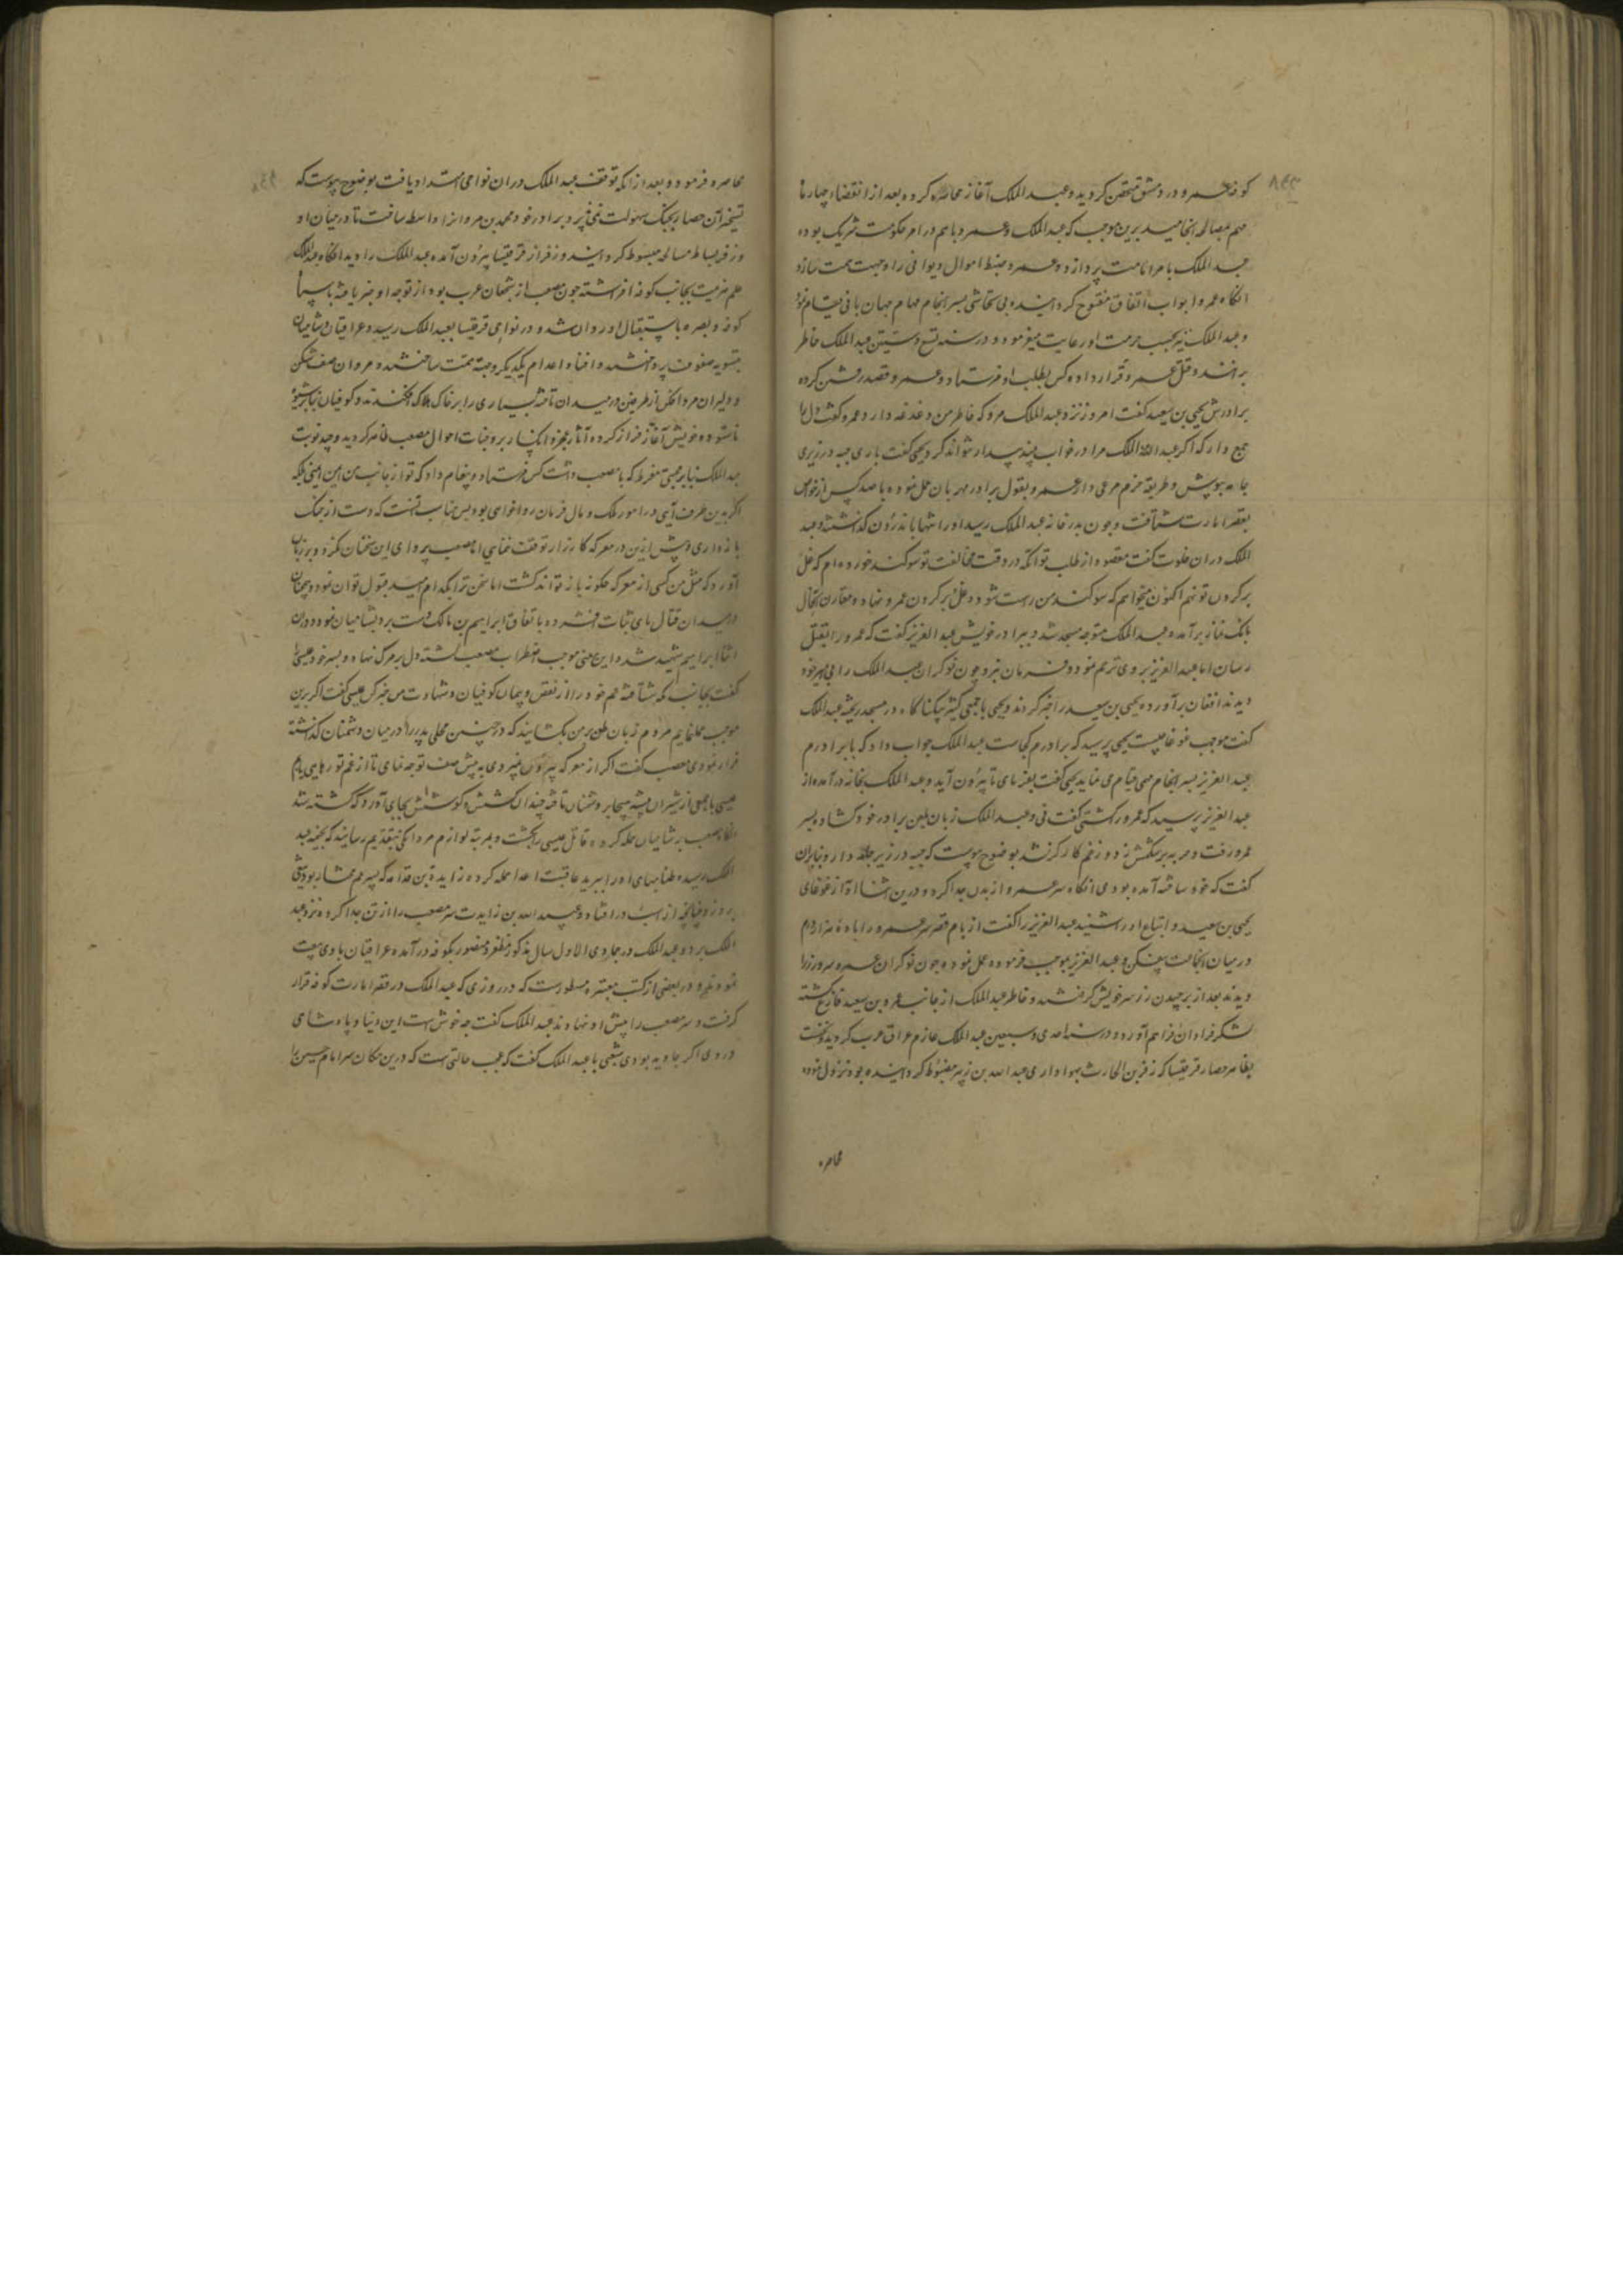 کوفه عمرو در دمشق متحصن کردید و عبد الملک آغاز محاصره کرده بعد از انقضاء چهار ماه
مهم بمصالحه انجامید برین موجب که عبد الملک و عمرو با هم در امر حکومت شریک بوده
عبد الملک بامر امامت پردازد و عمرو ضبط اموال دیوانی را وجهت همت سازد
انکاه عمرو ابواب اتفاق مفتوح کردانیده بی تحاشی بسر انجام مهام جهان بانی قیام نمود
و عبد الملک نیز بحسب حرمت او رعایت میفرمود و در سنه تسع و ستین عبد الملک خاطر
بر قتل عمرو قرار داده کس بطلب او فرستاد و عمرو قصد رفتن کرده
برادرش یحیی بن سعید کفت امروز نزد عبد الملک مرو که خاطر من دغدغه دارد عمرو کفت دل را
جمع دار که اکر عبد الملک مرا در خواب بیند بیدار نتواند کرد یحیی کفت باری جبه در زیری
جامه بپوش و طریقه حزم مرعی دار عمرو بقول برادر مهربان عمل نموده با صد کس از خواص
بقصر امارت شتافت و چون بدر خانه عبد الملک رسید او را تنها باندرون کذاشتند و عبد
الملک دران خلوت کفت مقصود از طلب تو انکه در وقت مخالفت تو سوکند خورده ام که غل
بر کردن تو نهم اکنون میخواهم که سوکند من راست شود و غل بر کردن عمرو نهاده مقارن انحال
بانک نماز برآمده عبد الملک متوجه مسجد شد و ببرادر خویش عبد العزیز کفت که عمرو را بقتل
رسان اما عبد العزیز بر وی ترحم نمود و فرمان نبرد چون نوکران عبد الملک را بی مهر خود
دیدند افغان برآورده یحیی بن سعید را خبر کردند و یحیی با جمعی کثیر بیکناکاه در مسجد ریخته عبد الملک
کفت موجب غوغا چیست یحیی پرسید که برادرم کجاست عبد الملک جواب داد که با برادرم
عبد العزیز بسر انجام مهمی قیام می نماید یحیی کفت بفرمای تا بیرون آید و عبد الملک بخانه درآمده از
عبد العزیز پرسید که عمرو را کشتی کفت نی و عبد الملک زبان بلعن برادر خود کشاده بسر
عمرو رفت و حربه بر شکمش زد و زخم کارکر نشد بوضوح پیوست که جبه در زیر جامه دارد بنابران
کفت که خود ساخته آمده بودی انکاه سر عمرو از بدن جدا کرده و درین اثنا آواز غوغای
یحیی بن سعید و اتباع او را شنید عبد العزیز را کفت از بام قصر سر عمرو را با ده هزار درم
در میان انجماعت بیفکن و عبد العزیز بموجب فرموده عمل نموده چون نوکران عمرو سر و زر را
دیدند بعد از برچیدن زر سر خویش کرفتند و خاطر عبد الملک از جانب عمرو بن سعید فارغ کشته
لشکر فراوان فراهم آورد و در سنه احدی و سبعین عبد الملک عازم عراق عرب کردید و نخست
بظاهر حصار قرقیسا که زفر بن الحارث بهواداری عبد الله بن زبیر مضبوط کردانیده بود نزول نموده
محاصره
محاصره فرمود و بعد از انکه توقف عبد الملک دران نواحی امتداد یافت بوضوح پیوست که
تسخیر آن حصار بجنک بسهولت نمی پذیرد برادر خود محمد بن مروانرا واسطه ساخت تا در میان او
و زفر بساط مصالحه مبسوط کردانید و زفر از قرقیسا بیرون آمده عبد الملک را دید انکاه عبد الملک
علم عزیمت بجانب کوفه افراشته چون مصعب از شجعان عرب بود از توجه او خبر یافته با سپاه
کوفه و بصره باستقبال او روان شد و در نواحی قرقیسا بعبد الملک رسید و عراقیان و شامیان
بتسویه صفوف پرداختند و افناء و اعدام یکدیکر وجهه همت ساختند و مروان صف شکن
و دلیران مرد افکن از طرفین در میدان تاخته بسیاری را بر خاک هلاک افکندند و کوفیان بنابر شیوه
ناستوده خویش آغاز فرار کرده آثار عجز و انکسار بر وجنات احوال مصعب ظاهر کردید و چند نوبت
عبد الملک بنابر محبتی مفرط که با مصعب داشت کس فرستاد و پیغام داد که تو از جانب من ایمنی بلکه
اکر بدین طرف آیی در امور ملک و مال فرمان روا خواهی بود پس مناسب انست که دست از جنک
بازداری و بیش ازین در معرکه کارزار توقف ننمایی اما مصعب پروای این سخنان نکرد و بر زبان
آورد که مثل من کسی از معرکه چکونه باز تواند کشت اما سخن ترا بکدام امید قبول توان نمود و همچنان
در میدان قتال پای ثبات فشرده باتفاق ابراهیم بن مالک دست برد بشامیان نمود و درین
اثنا ابراهیم شهید شد و این معنی موجب اضطراب مصعب کشته دل بر مرک نهاد و پسر خود عیسی را
کفت بجانب مکه شتافته عم خود را از نقض پیمان کوفیان و شهادت من خبر کن عیسی کفت اکر برین
موجب عمل نمایم مردم زبان طعن بر من بکشایند که در چنین محلی پدر را در میان دشمنان کذاشته
فرار نمودی مصعب کفت اکر از معرکه بیرون نمیروی به پیش صف توجه نمای تا از غم تو رهایی یابم
عیسی با جمعی از شیران بیشه هیجا بر دشمنان تاخته چندان کشش و کوشش بجای آورد که کشته شد
انکاه مصعب بر شامیان حمله کرده قاتل عیسی را بکشت و بمرتبه لوازم مردانکی بتقدیم رسانید که بخیمه عبد
الملک رسیده طنابهای او را ببرید عاقبت اعدا حمله کرده زایدة بن قدامه که پسر عم مختار بود تیغی
برو زد چنانچه از اسب درافتاد و عبید الله بن زیاد سر مصعب را از تن جدا کرده نزد عبد
الملک برد و عبد الملک در جمادی الاول سال مذکور مظفر و منصور بکوفه درآمده عراقیان با وی بیعت
نمودند و در بعضی از کتب معتبره مسطورست که در روزی که عبد الملک در قصر امارت کوفه قرار
کرفت و سر مصعب را پیش او نهادند عبد الملک کفت چه خوش است این دنیا و پادشاهی
در وی اکر جاوید بودی شعبی با عبد الملک کفت که عجب حالتی است که درین مکان سر امام حسین را